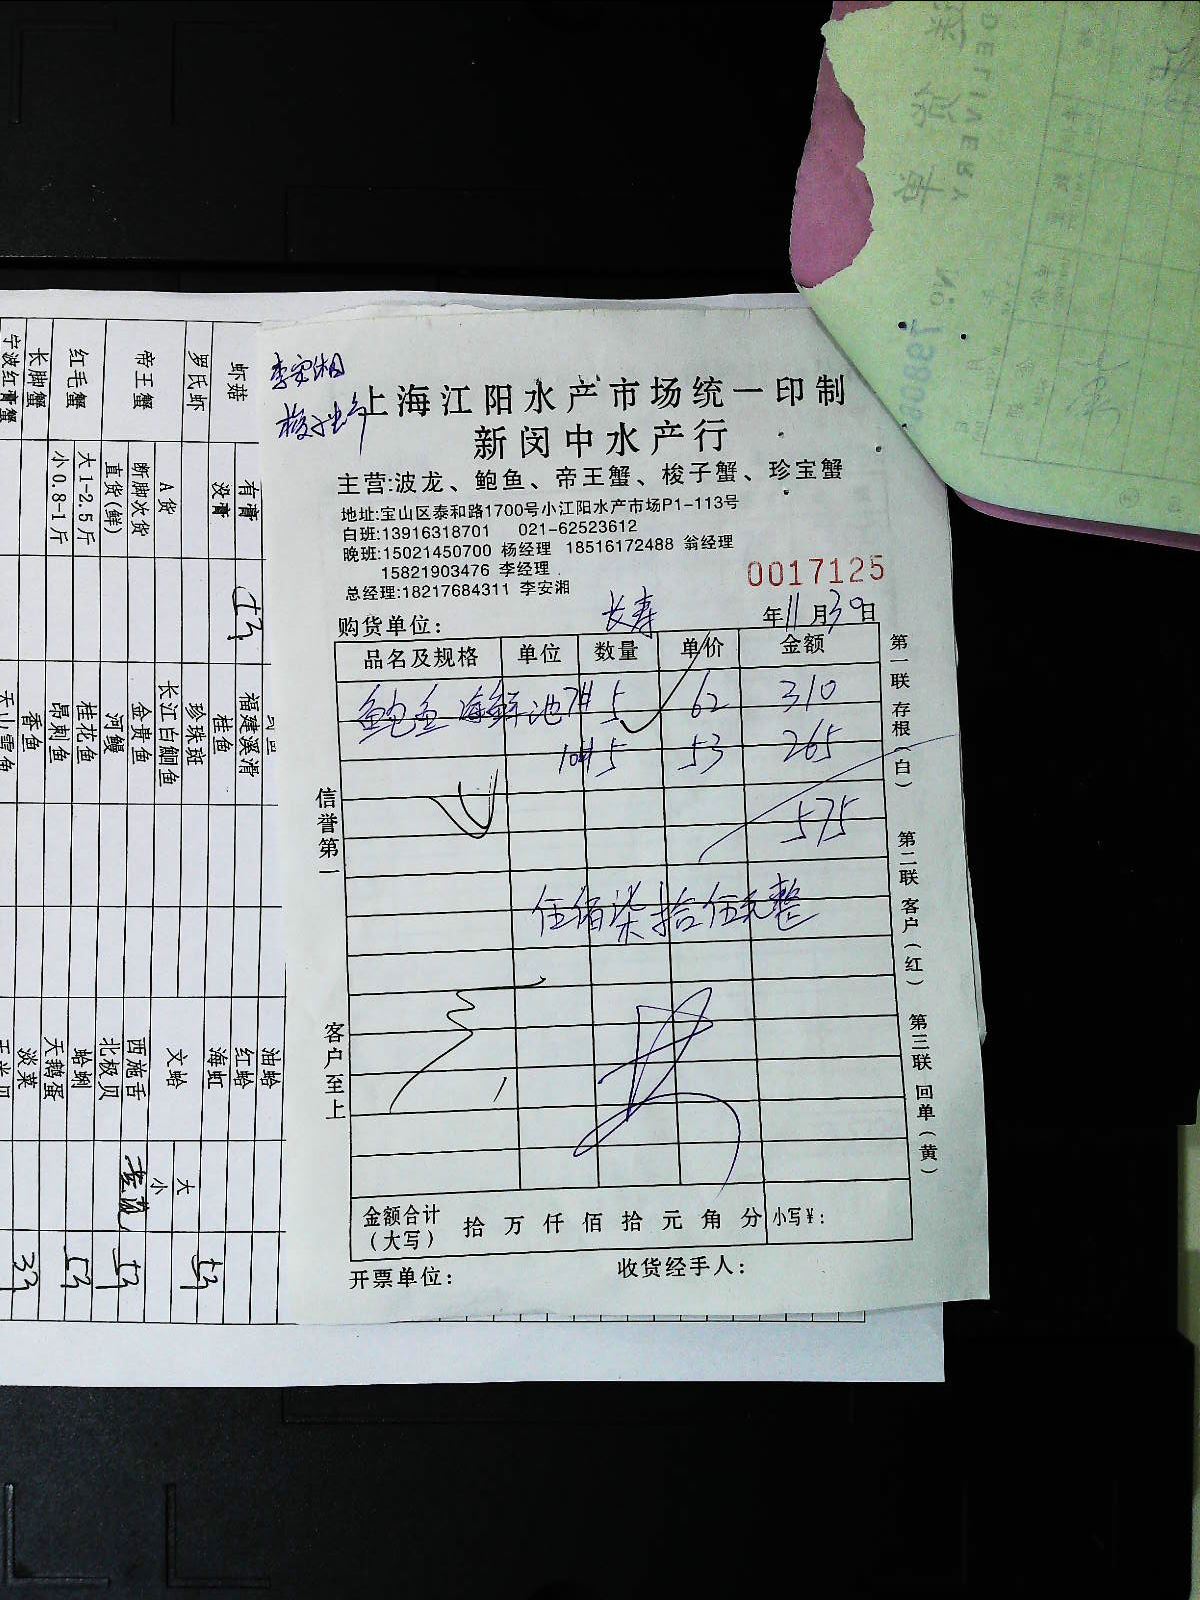 李安湘
上海江阳水产市场统一印制
新闵中水产行
主营:波龙、鲍鱼、帝王蟹、梭子蟹、珍宝蟹
地址:宝山区泰和路1700号小江阳水产市场P1-113号
白班:13916318701 021-62523612
晚班:15021450700 杨经理 18516172488 翁经理
15821903476 李经理
总经理:18217684311 李安湘
0017125
购货单位: 长寿 年11月30日
品名及规格 单位 数量 单价 金额
鲍鱼 海鲜池 7# 5 62 310
10# 5 53 265
575
伍佰柒拾伍元整
金额合计(大写) 拾 万 仟 佰 拾 元 角 分 小写¥:
开票单位: 收货经手人:
信誉第一
客户至上
第一联 存根(白)
第二联 客户(红)
第三联 回单(黄)
虾菇
有膏
没膏
罗氏虾
帝王蟹
A货
断脚次货
直货(鲜)
红毛蟹
大1-2.5斤
小0.8-1斤
长脚蟹
宁波红膏蟹
福建溪滑
桂鱼
珍珠斑
长江白鮰鱼
金贵鱼
河鳗
桂花鱼
昂刺鱼
香鱼
油蛤
红蛤
海虹
文蛤
大
小
西施舌
北极贝
蛤蜊
天鹅蛋
淡菜
DELIVERY
No